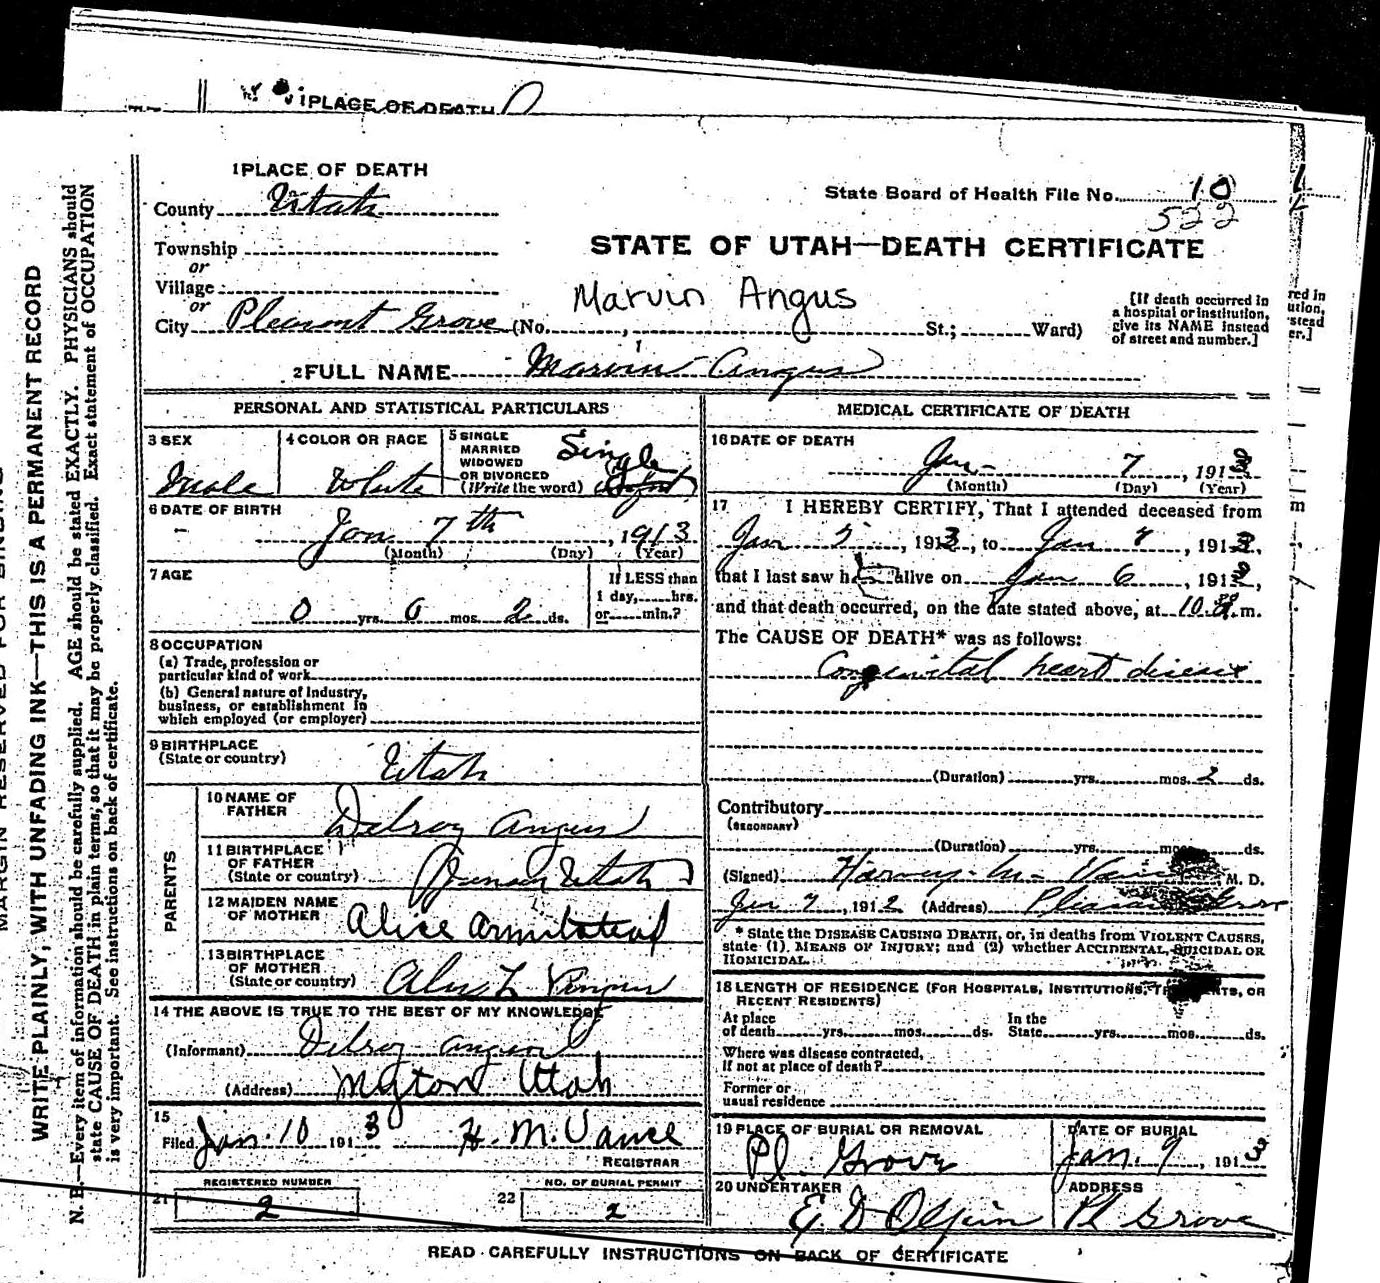 1 PLACE OF DEATH
1 PLACE OF DEATH
County Utah
State Board of Health File No. 10
522
Township
or
STATE OF UTAH—DEATH CERTIFICATE
Village
or
Marvin Angus
City Pleasant Grove (No. , St.; Ward)
[If death occurred in
a hospital or institution,
give its NAME instead
of street and number.]
2 FULL NAME Marvin Angus
PERSONAL AND STATISTICAL PARTICULARS
3 SEX
Male
4 COLOR OR RACE
White
5 SINGLE
MARRIED
WIDOWED
OR DIVORCED
(Write the word)
Single
6 DATE OF BIRTH
Jan 7th, 1913
(Month) (Day) (Year)
7 AGE
0 yrs. 0 mos. 2 ds.
If LESS than
1 day, hrs.
or min.?
8 OCCUPATION
(a) Trade, profession or
particular kind of work
(b) General nature of Industry,
business, or establishment in
which employed (or employer)
9 BIRTHPLACE
(State or country)
Utah
PARENTS
10 NAME OF
FATHER
Delroy Angus
11 BIRTHPLACE
OF FATHER
(State or country)
Utah
12 MAIDEN NAME
OF MOTHER
Alice
13 BIRTHPLACE
OF MOTHER
(State or country)
14 THE ABOVE IS TRUE TO THE BEST OF MY KNOWLEDGE
(Informant) Delroy Angus
(Address) Myton Utah
15
Filed Jan. 10 1913 H. M. Vance
REGISTRAR
REGISTERED NUMBER
21 2
NO. OF BURIAL PERMIT
22 2
MEDICAL CERTIFICATE OF DEATH
16 DATE OF DEATH
Jan 7, 191
(Month) (Day) (Year)
17 I HEREBY CERTIFY, That I attended deceased from
Jan 5, 1913, to Jan 7, 1913,
that I last saw h alive on Jan 6, 191,
and that death occurred, on the date stated above, at 10 m.
The CAUSE OF DEATH* was as follows:
Congenital heart disease
(Duration) yrs. mos. 2 ds.
Contributory
(SECONDARY)
(Duration) yrs. mos. ds.
(Signed) Harvey M. M. D.
Jan 7, 1912 (Address) Pleasant Grove
* State the DISEASE CAUSING DEATH, or, in deaths from VIOLENT CAUSES,
state (1) MEANS OF INJURY; and (2) whether ACCIDENTAL, SUICIDAL OR
HOMICIDAL.
18 LENGTH OF RESIDENCE (FOR HOSPITALS, INSTITUTIONS, OR
RECENT RESIDENTS)
At place
of death yrs. mos. ds.
In the
State yrs. mos. ds.
Where was disease contracted,
If not at place of death?
Former or
usual residence
19 PLACE OF BURIAL OR REMOVAL
Pl. Grove
DATE OF BURIAL
Jan. 9, 1913
20 UNDERTAKER
E D Olpin
ADDRESS
Pl Grove
READ CAREFULLY INSTRUCTIONS ON BACK OF CERTIFICATE
MARGIN RESERVED FOR BINDING
WRITE PLAINLY, WITH UNFADING INK—THIS IS A PERMANENT RECORD
N. B.—Every item of information should be carefully supplied. AGE should be stated EXACTLY. PHYSICIANS should
state CAUSE OF DEATH in plain terms, so that it may be properly classified. Exact statement of OCCUPATION
is very important. See instructions on back of certificate.